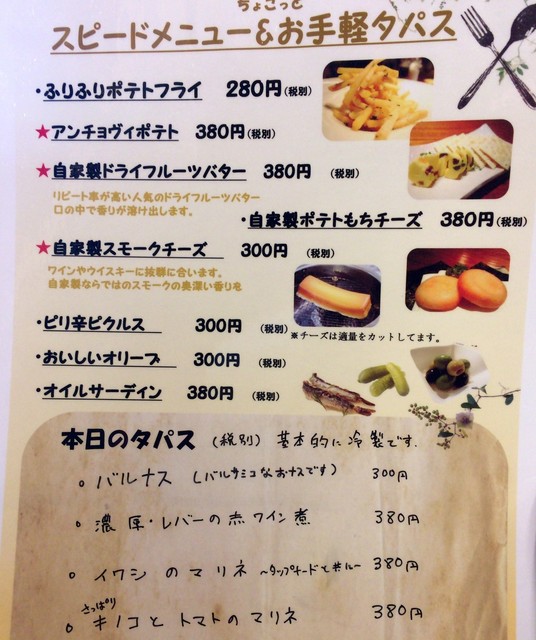 ちょこっと
スピードメニュー&お手軽タパス
・ふりふりポテトフライ 280円(税別)
★アンチョヴィポテト 380円(税別)
★自家製ドライフルーツバター 380円 (税別)
リピート率が高い人気のドライフルーツバター
口の中で香りが溶け出します。
・自家製ポテトもちチーズ 380円(税別)
★自家製スモークチーズ 300円 (税別)
ワインやウイスキーに抜群に合います。
自家製ならではのスモークの奥深い香りを
・ピリ辛ピクルス 300円 (税別)
※チーズは適量をカットしてます。
・おいしいオリーブ 300円 (税別)
・オイルサーディン 380円 (税別)
本日のタパス (税別) 基本的に冷製です.
。バルナス (バルサミコなおナスです) 300円
。濃厚・レバーの赤ワイン煮 380円
。イワシのマリネ ~タップナードと共に~ 380円
さっぱり
。キノコとトマトのマリネ 380円